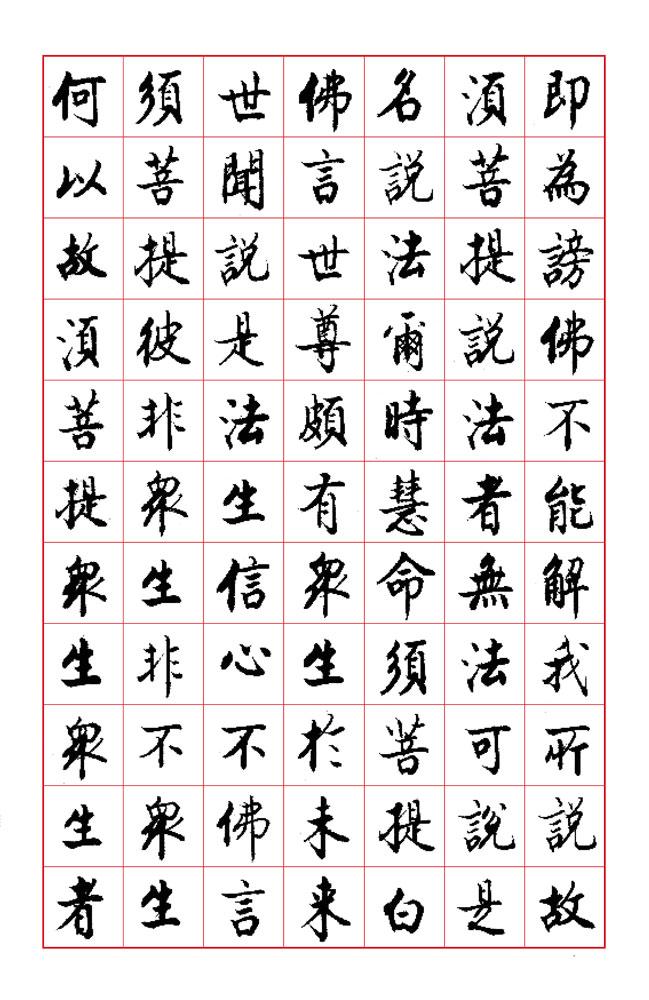 即為謗佛不能解我所說故
須菩提說法者無法可說是
名說法爾時慧命須菩提白
佛言世尊頗有眾生於未来
世聞說是法生信心不佛言
須菩提彼非眾生非不眾生
何以故須菩提眾生眾生者